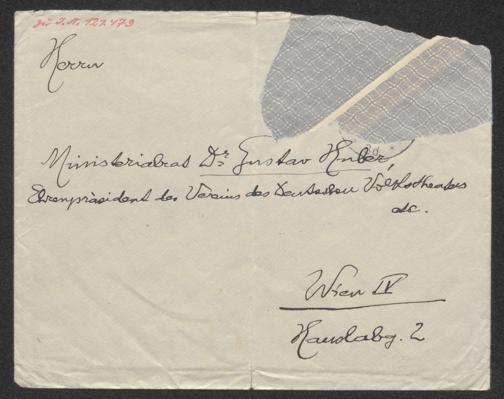 zu I.N. 127.479
Herrn
Ministerialrat Dr. Gustav Huber,
Ehrenpräsident des Vereins des Deutschen Volkstheaters
etc.
Wien IV
Hauslabg. 2